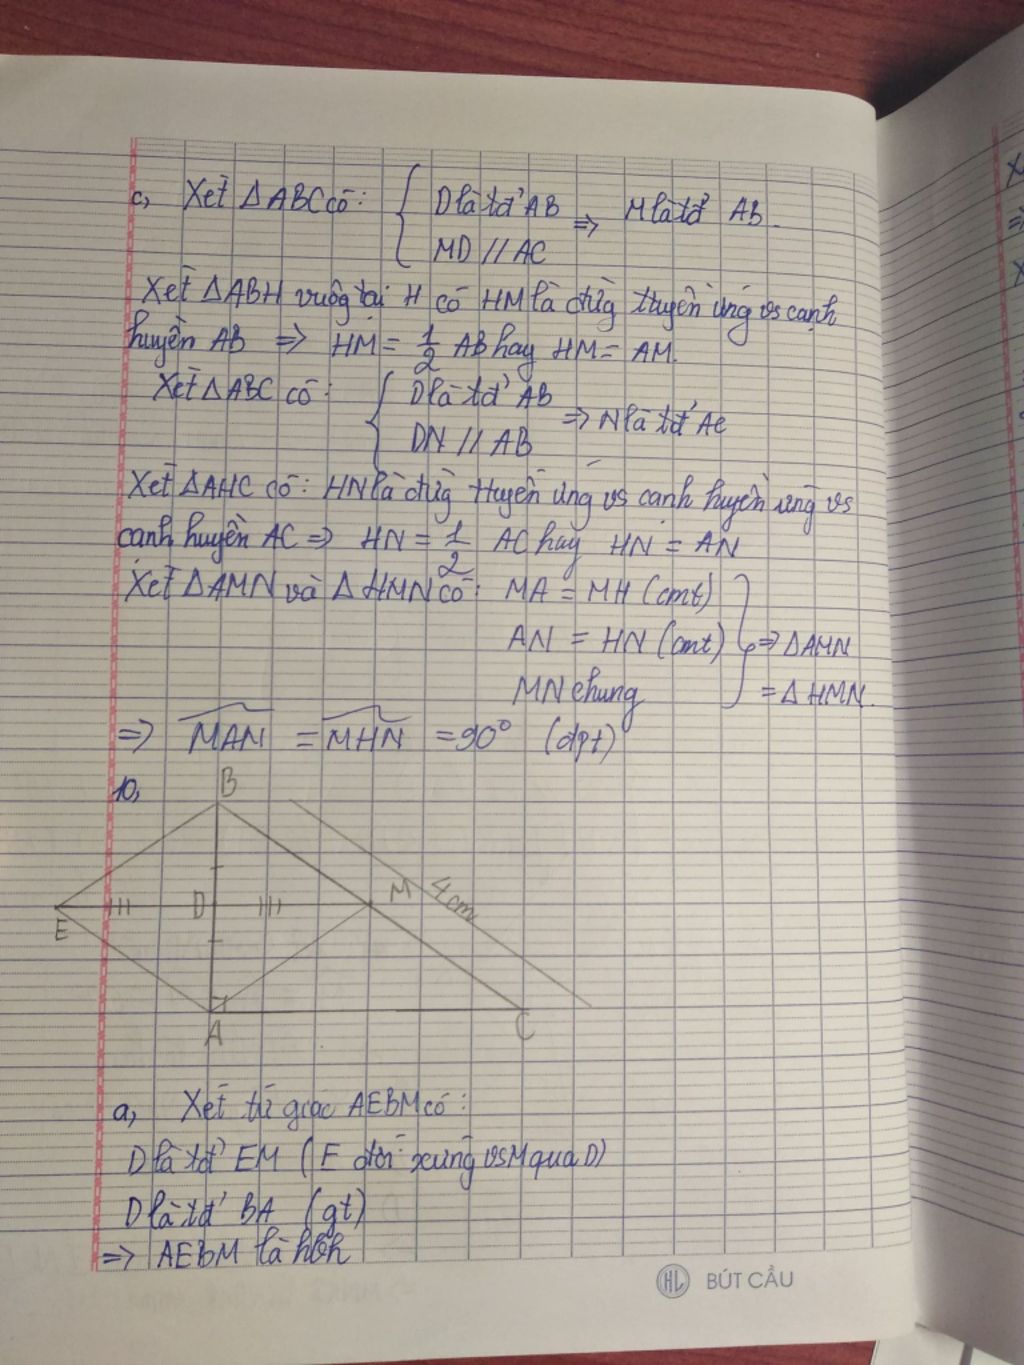 c, Xét ΔABC có: { D là tđ' AB
MD // AC ⇒ M là tđ' AB.
Xét ΔABH vuông tại H có HM là đường truyền ứng vs cạnh
huyền AB ⇒ HM = 1/2 AB hay HM = AM.
Xét ΔABC có: { D là tđ' AB
DN // AB ⇒ N là tđ' AC
Xét ΔAHC có: HN là đường truyền ứng vs cạnh huyền ứng vs
cạnh huyền AC ⇒ HN = 1/2 AC hay HN = AN
Xét ΔAMN và ΔHMN có: MA = MH (cmt)
AN = HN (cmt) } ⇒ ΔAMN
MN chung = ΔHMN.
⇒ MAN = MHN = 90° (đpt)
10,
B
E D M 4cm
A C
a, Xét tứ giác AEBM có:
D là tđ' EM (E đối xứng vs M qua D)
D là tđ' BA (gt)
⇒ AEBM là hbh
HL BÚT CẦU